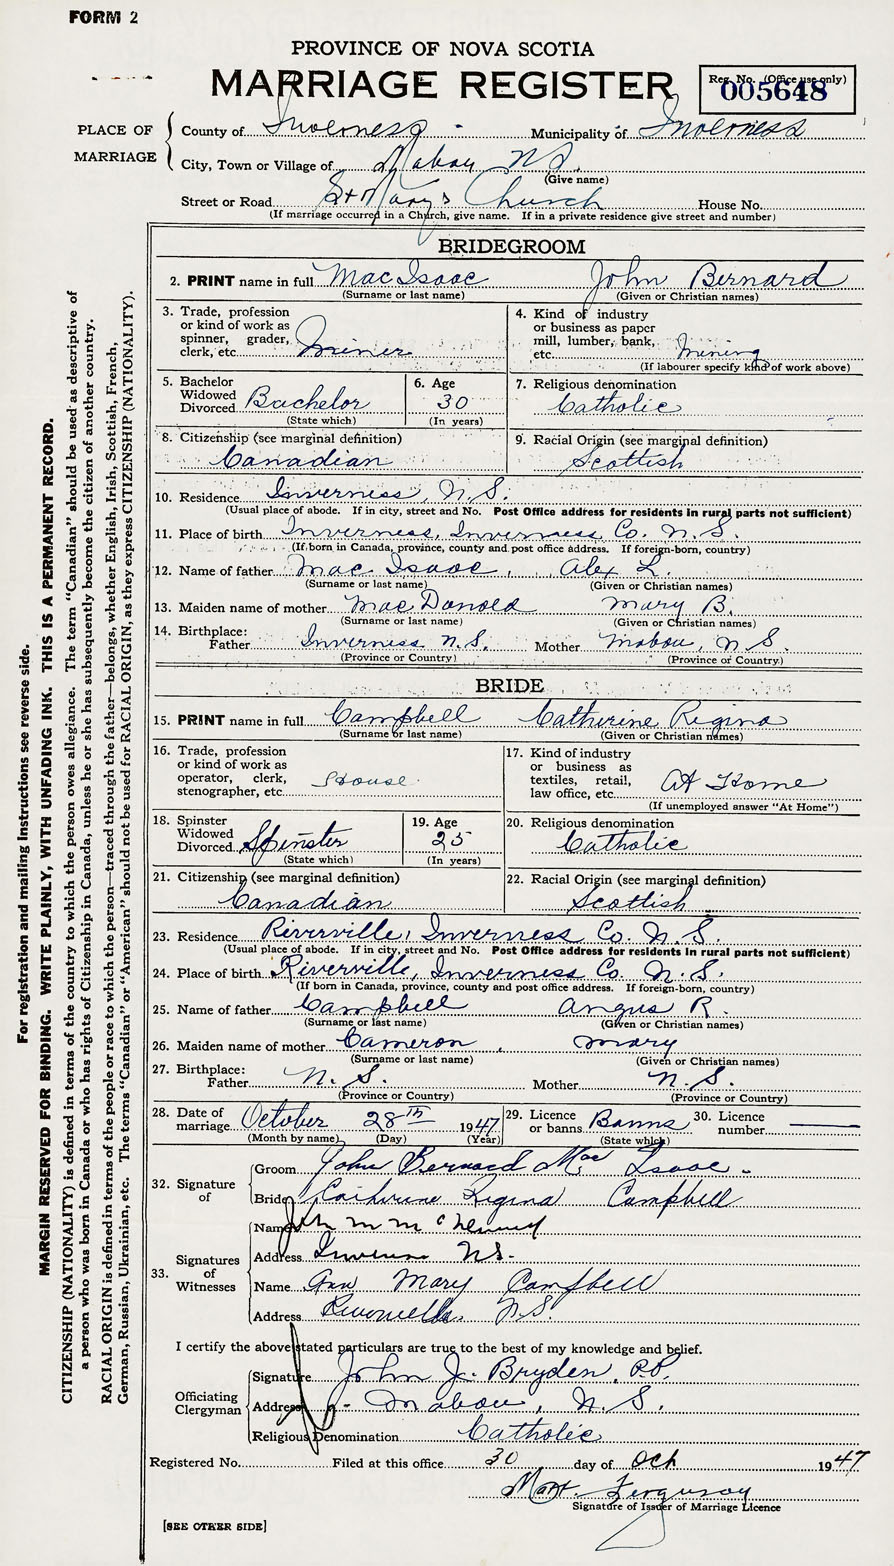 FORM 2
PROVINCE OF NOVA SCOTIA
MARRIAGE REGISTER
Reg. No. (Office use only)
005648
PLACE OF MARRIAGE
County of Inverness Municipality of Inverness
City, Town or Village of Mabou NS
(Give name)
Street or Road St Mary's Church House No.
(If marriage occurred in a Church, give name. If in a private residence give street and number)
BRIDEGROOM
2. PRINT name in full Mac Isaac John Bernard
(Surname or last name) (Given or Christian names)
3. Trade, profession or kind of work as spinner, grader, clerk, etc. Miner
4. Kind of industry or business as paper mill, lumber, bank, etc. Mining
(If labourer specify kind of work above)
5. Bachelor Widowed Divorced Bachelor
(State which)
6. Age 30
(In years)
7. Religious denomination
Catholic
8. Citizenship (see marginal definition)
Canadian
9. Racial Origin (see marginal definition)
Scottish
10. Residence Inverness, N.S.
(Usual place of abode. If in city, street and No. Post Office address for residents in rural parts not sufficient)
11. Place of birth Inverness, Inverness Co. N.S.
(If born in Canada, province, county and post office address. If foreign-born, country)
12. Name of father Mac Isaac, Alex L.
(Surname or last name) (Given or Christian names)
13. Maiden name of mother MacDonald Mary B.
(Surname or last name) (Given or Christian names)
14. Birthplace:
Father Inverness N.S. Mother Mabou, N S
(Province or Country) (Province or Country)
BRIDE
15. PRINT name in full Campbell Catherine Regina
(Surname or last name) (Given or Christian names)
16. Trade, profession or kind of work as operator, clerk, stenographer, etc. House
17. Kind of industry or business as textiles, retail, law office, etc. At Home
(If unemployed answer "At Home")
18. Spinster Widowed Divorced Spinster
(State which)
19. Age 25
(In years)
20. Religious denomination
Catholic
21. Citizenship (see marginal definition)
Canadian
22. Racial Origin (see marginal definition)
Scottish
23. Residence Riverville, Inverness Co. N.S.
(Usual place of abode. If in city, street and No. Post Office address for residents in rural parts not sufficient)
24. Place of birth Riverville, Inverness Co. N.S.
(If born in Canada, province, county and post office address. If foreign-born, country)
25. Name of father Campbell Angus R.
(Surname or last name) (Given or Christian names)
26. Maiden name of mother Cameron, Mary
(Surname or last name) (Given or Christian names)
27. Birthplace:
Father N.S. Mother N.S.
(Province or Country) (Province or Country)
28. Date of marriage October 28th 1947
(Month by name) (Day) (Year)
29. Licence or banns Banns
(State which)
30. Licence number
32. Signature of
Groom John Bernard Mac Isaac.
Bride Catherine Regina Campbell
33. Signatures of Witnesses
Name
Address Inverness NS.
Name Ann Mary Campbell
Address Riverville N.S.
I certify the above stated particulars are true to the best of my knowledge and belief.
Officiating Clergyman
Signature John J. Bryden, P.P.
Address Mabou, N.S.
Religious Denomination Catholic
Registered No. Filed at this office 30 day of Oct 1947
Ferguson
Signature of Issuer of Marriage Licence
[SEE OTHER SIDE]
For registration and mailing instructions see reverse side.
MARGIN RESERVED FOR BINDING. WRITE PLAINLY, WITH UNFADING INK. THIS IS A PERMANENT RECORD.
CITIZENSHIP (NATIONALITY) is defined in terms of the country to which the person owes allegiance. The term "Canadian" should be used as descriptive of
a person who was born in Canada or who has rights of Citizenship in Canada, unless he or she has subsequently become the citizen of another country.
RACIAL ORIGIN is defined in terms of the people or race to which the person—traced through the father—belongs, whether English, Irish, Scottish, French,
German, Russian, Ukrainian, etc. The terms "Canadian" or "American" should not be used for RACIAL ORIGIN, as they express CITIZENSHIP (NATIONALITY).